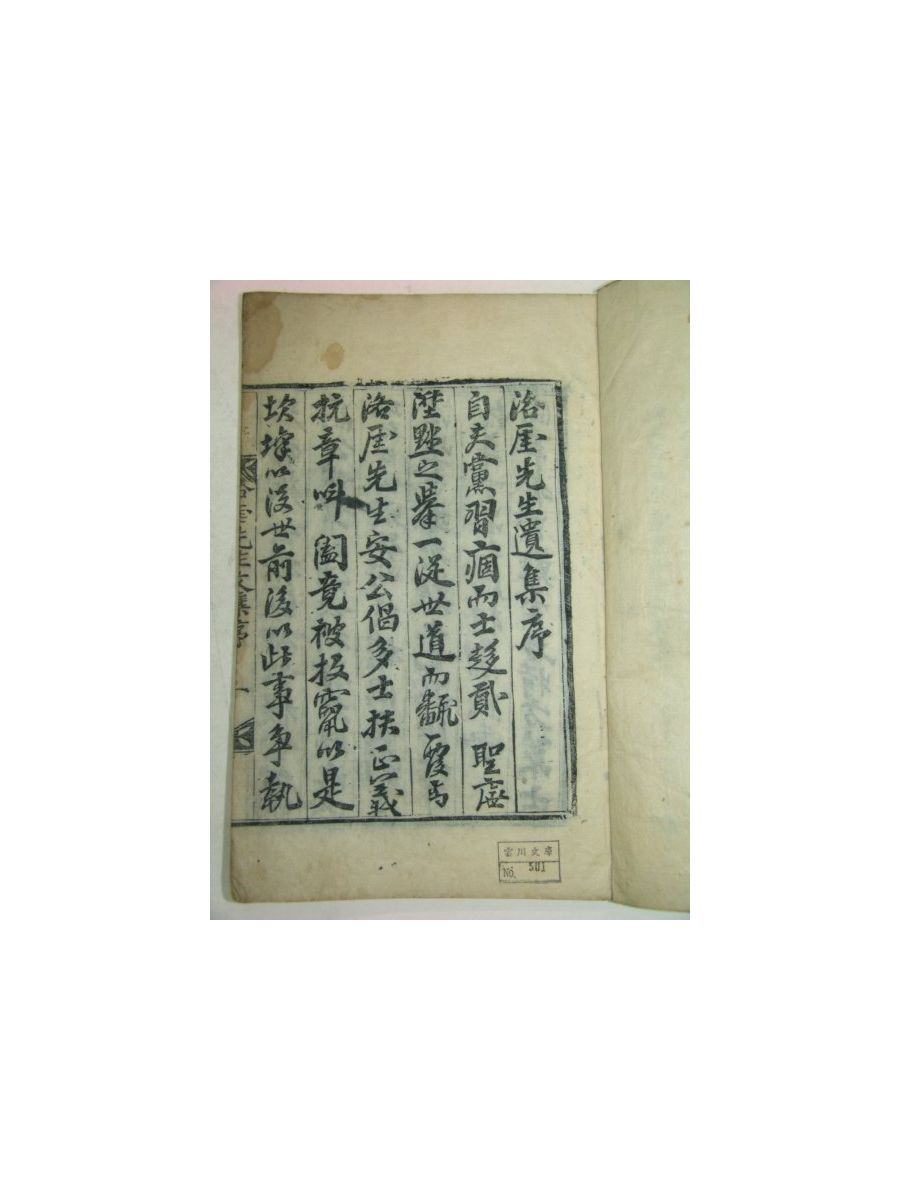 洛厓先生遺集序
自夫黨習痼而士趍貳 聖廡
陞黜之擧一從世道而飜覆焉
洛厓先生安公倡多士扶正義
抗章叫 閤竟被投竄以是
坎壈以沒世前後以此事爭執
先生文集序 一
雲川文庫
No. 501